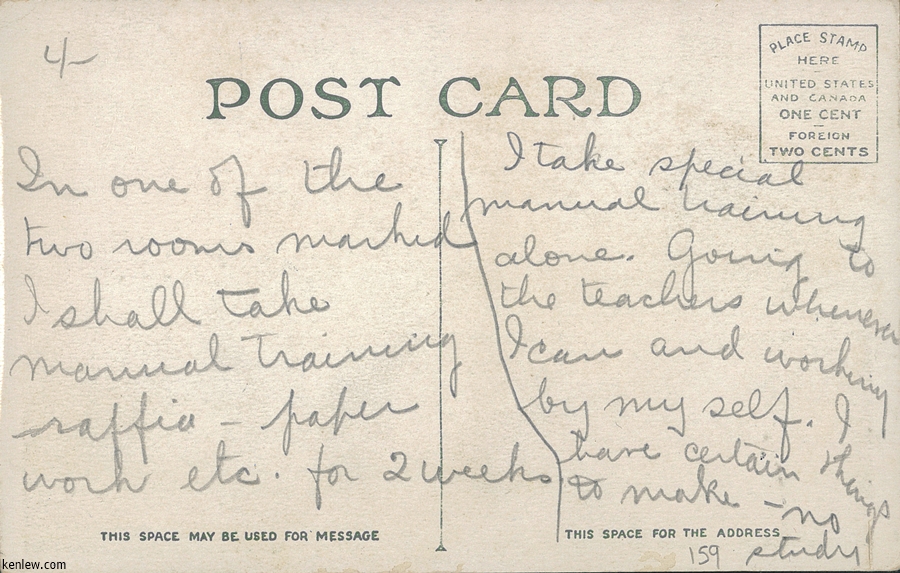 4/-
POST CARD
PLACE STAMP
HERE
UNITED STATES
AND CANADA
ONE CENT
FOREIGN
TWO CENTS
In one of the
two rooms marked
I shall take
manual training
raffia - paper
work etc. for 2 weeks
THIS SPACE MAY BE USED FOR MESSAGE
I take special
manual training
alone. Going to
the teachers whenever
I can and working
by my self. I
have certain things
to make - no
study
THIS SPACE FOR THE ADDRESS
159
kenlew.com